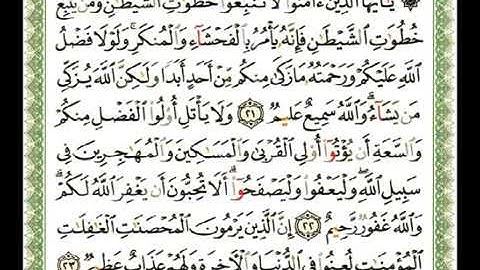 ۞ يَٰٓأَيُّهَا ٱلَّذِينَ ءَامَنُوا۟ لَا تَتَّبِعُوا۟ خُطُوَٰتِ ٱلشَّيْطَٰنِ وَمَن يَتَّبِعْ
خُطُوَٰتِ ٱلشَّيْطَٰنِ فَإِنَّهُۥ يَأْمُرُ بِٱلْفَحْشَآءِ وَٱلْمُنكَرِ ۚ وَلَوْلَا فَضْلُ
ٱللَّهِ عَلَيْكُمْ وَرَحْمَتُهُۥ مَا زَكَىٰ مِنكُم مِّنْ أَحَدٍ أَبَدًا وَلَٰكِنَّ ٱللَّهَ يُزَكِّى
مَن يَشَآءُ ۗ وَٱللَّهُ سَمِيعٌ عَلِيمٌ ٢١ وَلَا يَأْتَلِ أُو۟لُوا۟ ٱلْفَضْلِ مِنكُمْ
وَٱلسَّعَةِ أَن يُؤْتُوٓا۟ أُو۟لِى ٱلْقُرْبَىٰ وَٱلْمَسَٰكِينَ وَٱلْمُهَٰجِرِينَ فِى
سَبِيلِ ٱللَّهِ ۖ وَلْيَعْفُوا۟ وَلْيَصْفَحُوٓا۟ ۗ أَلَا تُحِبُّونَ أَن يَغْفِرَ ٱللَّهُ لَكُمْ ۗ
وَٱللَّهُ غَفُورٌ رَّحِيمٌ ٢٢ إِنَّ ٱلَّذِينَ يَرْمُونَ ٱلْمُحْصَنَٰتِ ٱلْغَٰفِلَٰتِ
ٱلْمُؤْمِنَٰتِ لُعِنُوا۟ فِى ٱلدُّنْيَا وَٱلْءَاخِرَةِ وَلَهُمْ عَذَابٌ عَظِيمٌ ٢٣